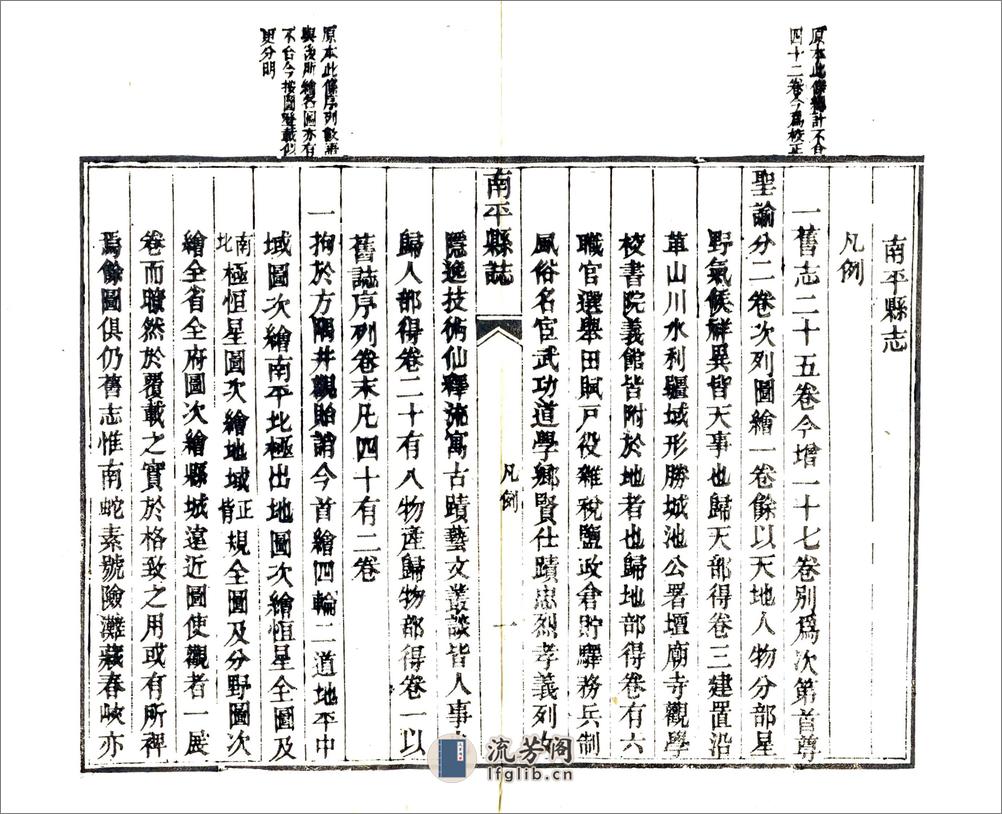 原本此條總計不合
四十二卷今爲校正
南平縣志
凡例
一舊志二十五卷今增一十七卷別爲次第首尊
聖諭分二卷次列圖繪一卷餘以天地人物分部星
野氣候祥異皆天事也歸天部得卷三建置沿
革山川水利疆域形勝城池公署壇廟寺觀學
校書院義館皆附於地者也歸地部得卷有六
職官選舉田賦戸役雜稅鹽政倉貯驛務兵制
風俗名宦武功道學鄉賢仕蹟忠烈孝義列女
南平縣誌
凡例
一
隱逸技術仙釋流寓古蹟藝文叢談皆人事也
歸人部得卷二十有八物產歸物部得卷一以
舊誌序列卷末凡四十有二卷
原本此條序列數語
與後所繪各圖亦有
不合今按圖登載似
更分明
一拘於方隅井觀貽誚今首繪四輪二道地平中
域圖次繪南平北極出地圖次繪恒星全圖及
南北極恒星圖次繪地域正背規全圖及分野圖次
繪全省全府圖次繪縣城遠近圖使觀者一展
卷而瞭然於覆載之實於格致之用或有所裨
焉餘圖俱仍舊志惟南蛇素號險灘藏春峽亦
流芳閣
lfglib.cn